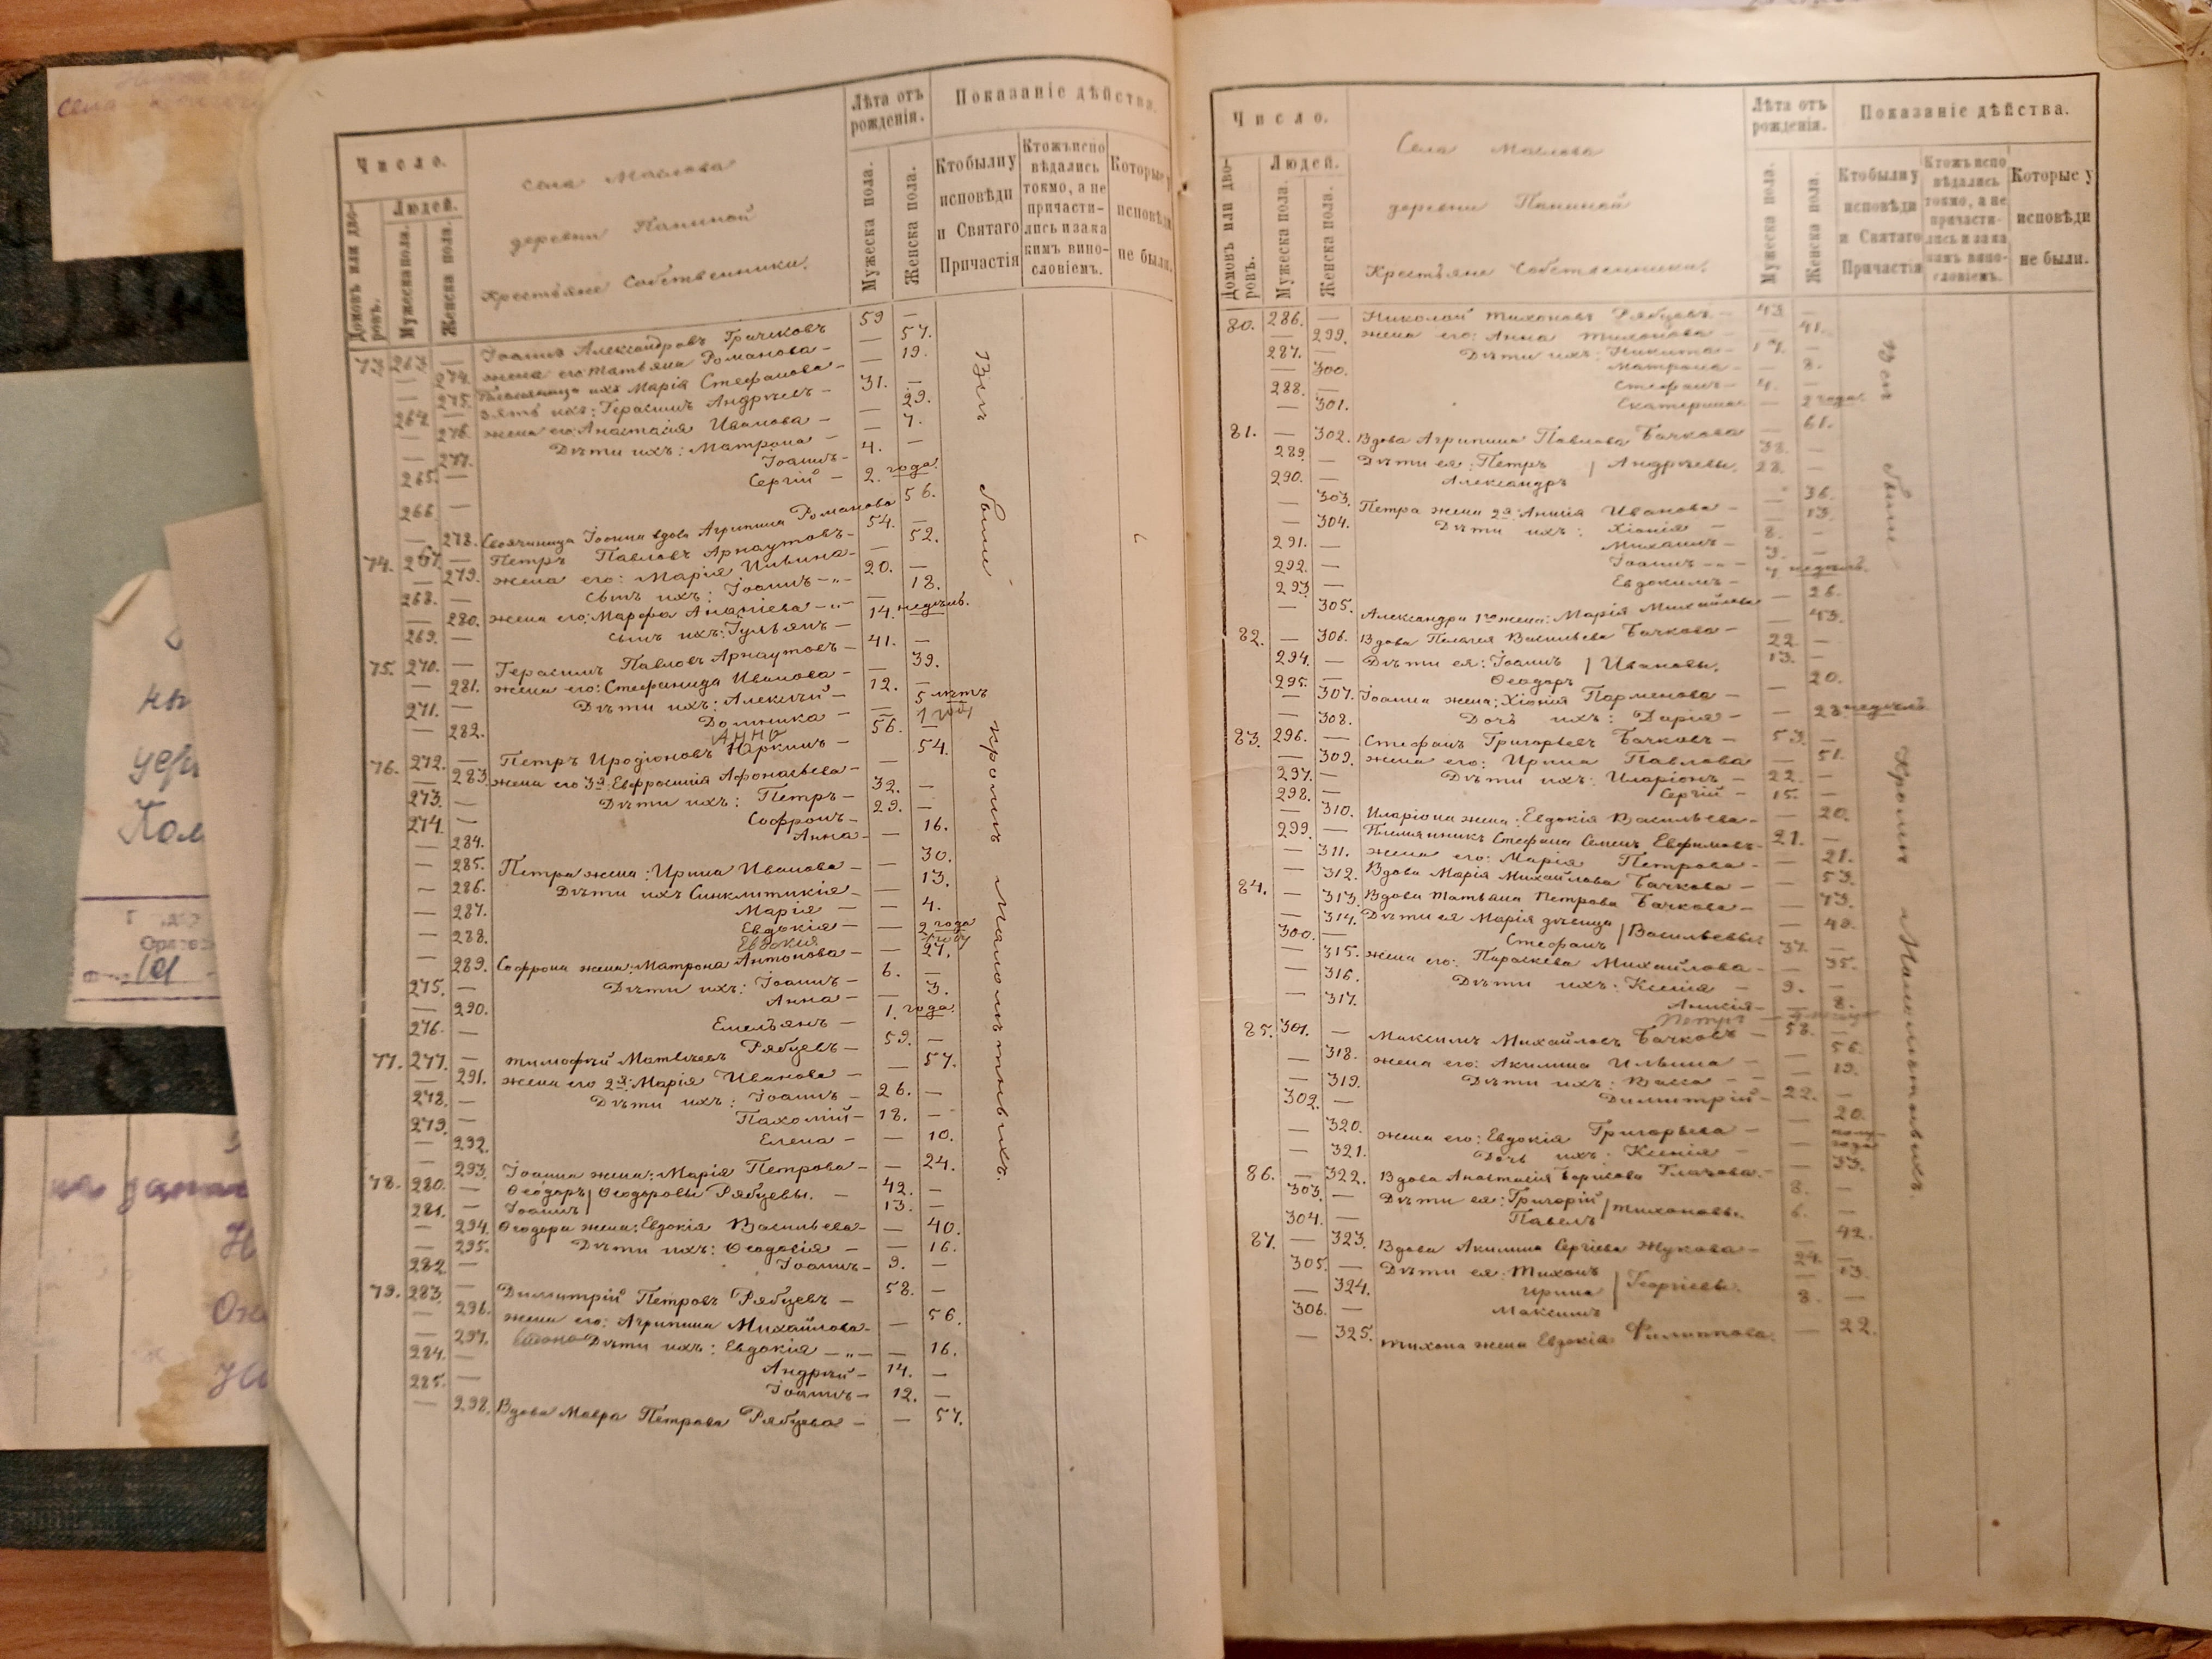 Число.
Домовъ или дворовъ.
Людей.
Мужеска пола.
Женска пола.
Села Маслова
деревни Паниной
Крестьяне Собственники.
Лѣта отъ рожденія.
Мужеска пола.
Женска пола.
Показаніе дѣйства.
Кто были у исповѣди и Святаго Причастія
Кто жъ исповѣдались токмо, а не причастились и за какимъ винословіемъ.
Которые у исповѣди не были.
73. 263. — Іоаннъ Александровъ Грачековъ 59 —
— 274. жена его Татьяна Романова — — 57.
— 275. Племянница ихъ Марія Стефанова — — 19.
264. — Зять ихъ: Герасимъ Андреевъ — 31. —
— 276. жена его: Анастасія Иванова — — 29.
— 277. Дѣти ихъ: Матрона — — 7.
265. — Іоаннъ — 4. —
266. — Сергій — 2. года.
— 278. Своячиница Іоанна вдова Агрипина Романова 56.
74. 267. — Петръ Павловъ Арнаутовъ — 54. —
— 279. жена его: Марія Ильина — — 52.
268. — Сынъ ихъ: Іоаннъ — 20. —
— 280. жена его: Марфа Ананіева — — 18.
269. — сынъ ихъ: Іульянъ — 14. недѣль.
75. 270. — Герасимъ Павловъ Арнаутовъ — 41. —
— 281. жена его: Стефанида Иванова — — 39.
271. — Дѣти ихъ: Алексѣй — 12. —
— 282. Домника — — 5 лѣтъ
Анна 1 годъ
76. 272. — Петръ Иродіоновъ Юркинъ — 56. —
— 283. жена его 3я: Евфросинія Афонасьева — — 54.
273. — Дѣти ихъ: Петръ — 32. —
274. — Софронъ — 29. —
— 284. Анна — — 16.
— 285. Петра жена: Ирина Иванова — — 30.
— 286. Дѣти ихъ Синклитикія — — 13.
— 287. Марія — — 4.
— 288. Евдокія — — 2 года
Евдокия
— 289. Софрона жена: Матрона Антонова — — 27.
275. — Дѣти ихъ: Іоаннъ — 6. —
— 290. Анна — — 3.
276. — Емельянъ — 1. года.
77. 277. — Тимофѣй Матвѣевъ Рябцевъ — 59. —
— 291. жена его 2я: Марія Иванова — — 57.
278. — Дѣти ихъ: Іоаннъ — 26. —
279. — Пахомій — 18. —
— 292. Елена — — 10.
— 293. Іоанна жена: Марія Петрова — — 24.
78. 280. — Ѳеодоръ } Ѳеодоровы Рябцевы. — 42. —
281. — Іоаннъ 13. —
— 294. Ѳеодора жена: Евдокія Васильева — — 40.
— 295. Дѣти ихъ: Ѳеодосія — — 16.
282. — Іоаннъ — 9. —
79. 283. — Димитрій Петровъ Рябцевъ — 58. —
— 296. жена его: Агрипина Михайлова — — 56.
— 297. Дѣти ихъ: Евдокія — — 16.
284. — Андрѣй — 14. —
285. — Іоаннъ — 12. —
— 298. Вдова Мавра Петрова Рябцева — — 57.
Всѣ были кромѣ малолѣтныхъ.
Число.
Домовъ или дворовъ.
Людей.
Мужеска пола.
Женска пола.
Села Маслова
деревни Паниной
Крестьяне Собственники.
Лѣта отъ рожденія.
Мужеска пола.
Женска пола.
Показаніе дѣйства.
Кто были у исповѣди и Святаго Причастія
Кто жъ исповѣдались токмо, а не причастились и за какимъ винословіемъ.
Которые у исповѣди не были.
80. 286. — Николай Тихоновъ Рябцевъ — 43. —
— 299. жена его: Анна Тихонова — — 41.
287. — Дѣти ихъ: Никита — 17. —
— 300. Матрона — — 8.
288. — Стефанъ — 4. —
— 301. Екатерина — 2 года.
81. — 302. Вдова Агрипина Павлова Бачкова — 61.
289. — Дѣти ея: Петръ } Андреевы. 38. —
290. — Александръ 28. —
— 303. Петра жена 2я: Анисія Иванова — — 36.
— 304. Дѣти ихъ: Хіонія — — 13.
291. — Михаилъ — 8. —
292. — Іоаннъ — 3. —
293. — Евдокимъ — 7 недѣль.
— 305. Александра 1го жена: Марія Михайлова — 26.
82. — 306. Вдова Пелагея Васильева Бачкова — 43.
294. — Дѣти ея: Іоаннъ } Ивановы. 22. —
295. — Ѳеодоръ 13. —
— 307. Іоанна жена: Хіонія Парменова — — 20.
— 308. Дочь ихъ: Дарія — — 23 недѣль
83. 296. — Стефанъ Григорьевъ Бачковъ — 53. —
— 309. жена его: Ирина Павлова — 51.
297. — Дѣти ихъ: Иларіонъ — 22. —
298. — Сергій — 15. —
— 310. Иларіона жена: Евдокія Васильева — — 20.
299. — Племянникъ Стефана Семенъ Евфимовъ — 21. —
— 311. жена его: Марія Петрова — — 21.
— 312. Вдова Марія Михайлова Бачкова — — 53.
84. — 313. Вдова Татьяна Петрова Бачкова — — 73.
— 314. Дѣти ея Марія дѣвица } Васильевы — 40.
300. — Стефанъ 37. —
— 315. жена его: Параскева Михайлова — — 35.
— 316. Дѣти ихъ: Ксенія — 9. —
— 317. Анисія — — 8.
Петръ
85. 301. — Максимъ Михайловъ Бачковъ — 58. —
— 318. жена его: Акилина Ильина — — 56.
— 319. Дѣти ихъ: Васса — — 19.
302. — Димитрій — 22. —
— 320. жена его: Евдокія Григорьева — — 20.
— 321. Дочь ихъ: Ксенія — — полу-года
86. — 322. Вдова Анастасія Борисова Глазова. — — 33.
303. — Дѣти ея: Григорій } Тихоновы. 8. —
304. — Павелъ 6. —
87. — 323. Вдова Акилина Сергіева Жукова — — 42.
305. — Дѣти ея: Тихонъ } Георгіевы. 24. —
— 324. Ирина — 13.
306. — Максимъ 8. —
— 325. Тихона жена Евдокія Филиппова. — 22.
Всѣ были кромѣ малолѣтныхъ.